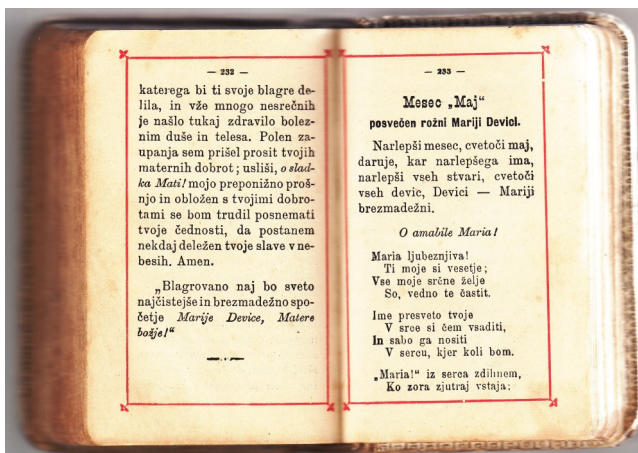 — 232 —
katerega bi ti svoje blagre de-
lila, in vže mnogo nesrečnih
je našlo tukaj zdravilo bolez-
nim duše in telesa. Polen za-
upanja sem prišel prosit tvojih
maternih dobrot; usliši, o slad-
ka Mati! mojo preponižno proš-
njo in obložen s tvojimi dobro-
tami se bom trudil posnemati
tvoje čednosti, da postanem
nekdaj deležen tvoje slave v ne-
besih. Amen.
„Blagrovano naj bo sveto
najčistejše in brezmadežno spo-
četje Marije Device, Matere
božje!“
— 233 —
Mesec „Maj“
posvečen rožni Mariji Devici.
Narlepši mesec, cvetoči maj,
daruje, kar narlepšega ima,
narlepši vseh stvari, cvetoči
vseh devic, Devici — Mariji
brezmadežni.
O amabile Maria!
Maria ljubeznjiva!
Ti moje si vesetje;
Vse moje srčne želje
So, vedno te častit.
Ime presveto tvoje
V srce si čem vsaditi,
In sabo ga nositi
V sercu, kjer koli bom.
„Maria!“ iz serca zdihnem,
Ko zora zjutraj vstaja;